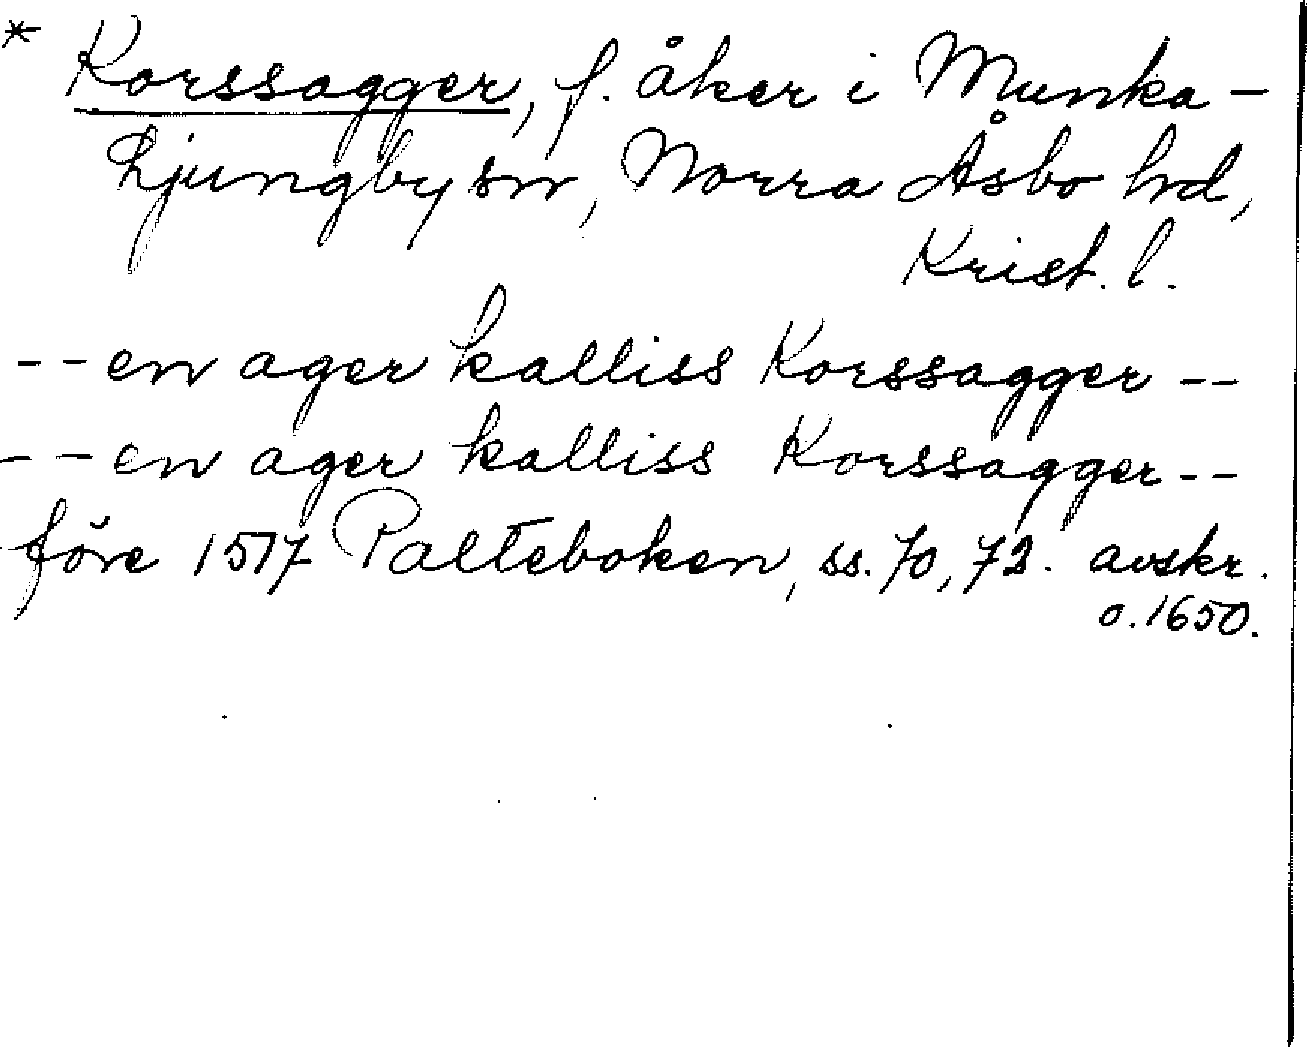 * Korssagger, f. åker i Munka-
Ljungby sn, Norra Åsbo hd,
Krist. l.
-- en ager kalliss Korssagger --
-- en ager kalliss Korssagger --
före 1517 Palteboken, ss. 70, 72. avskr.
o. 1650.